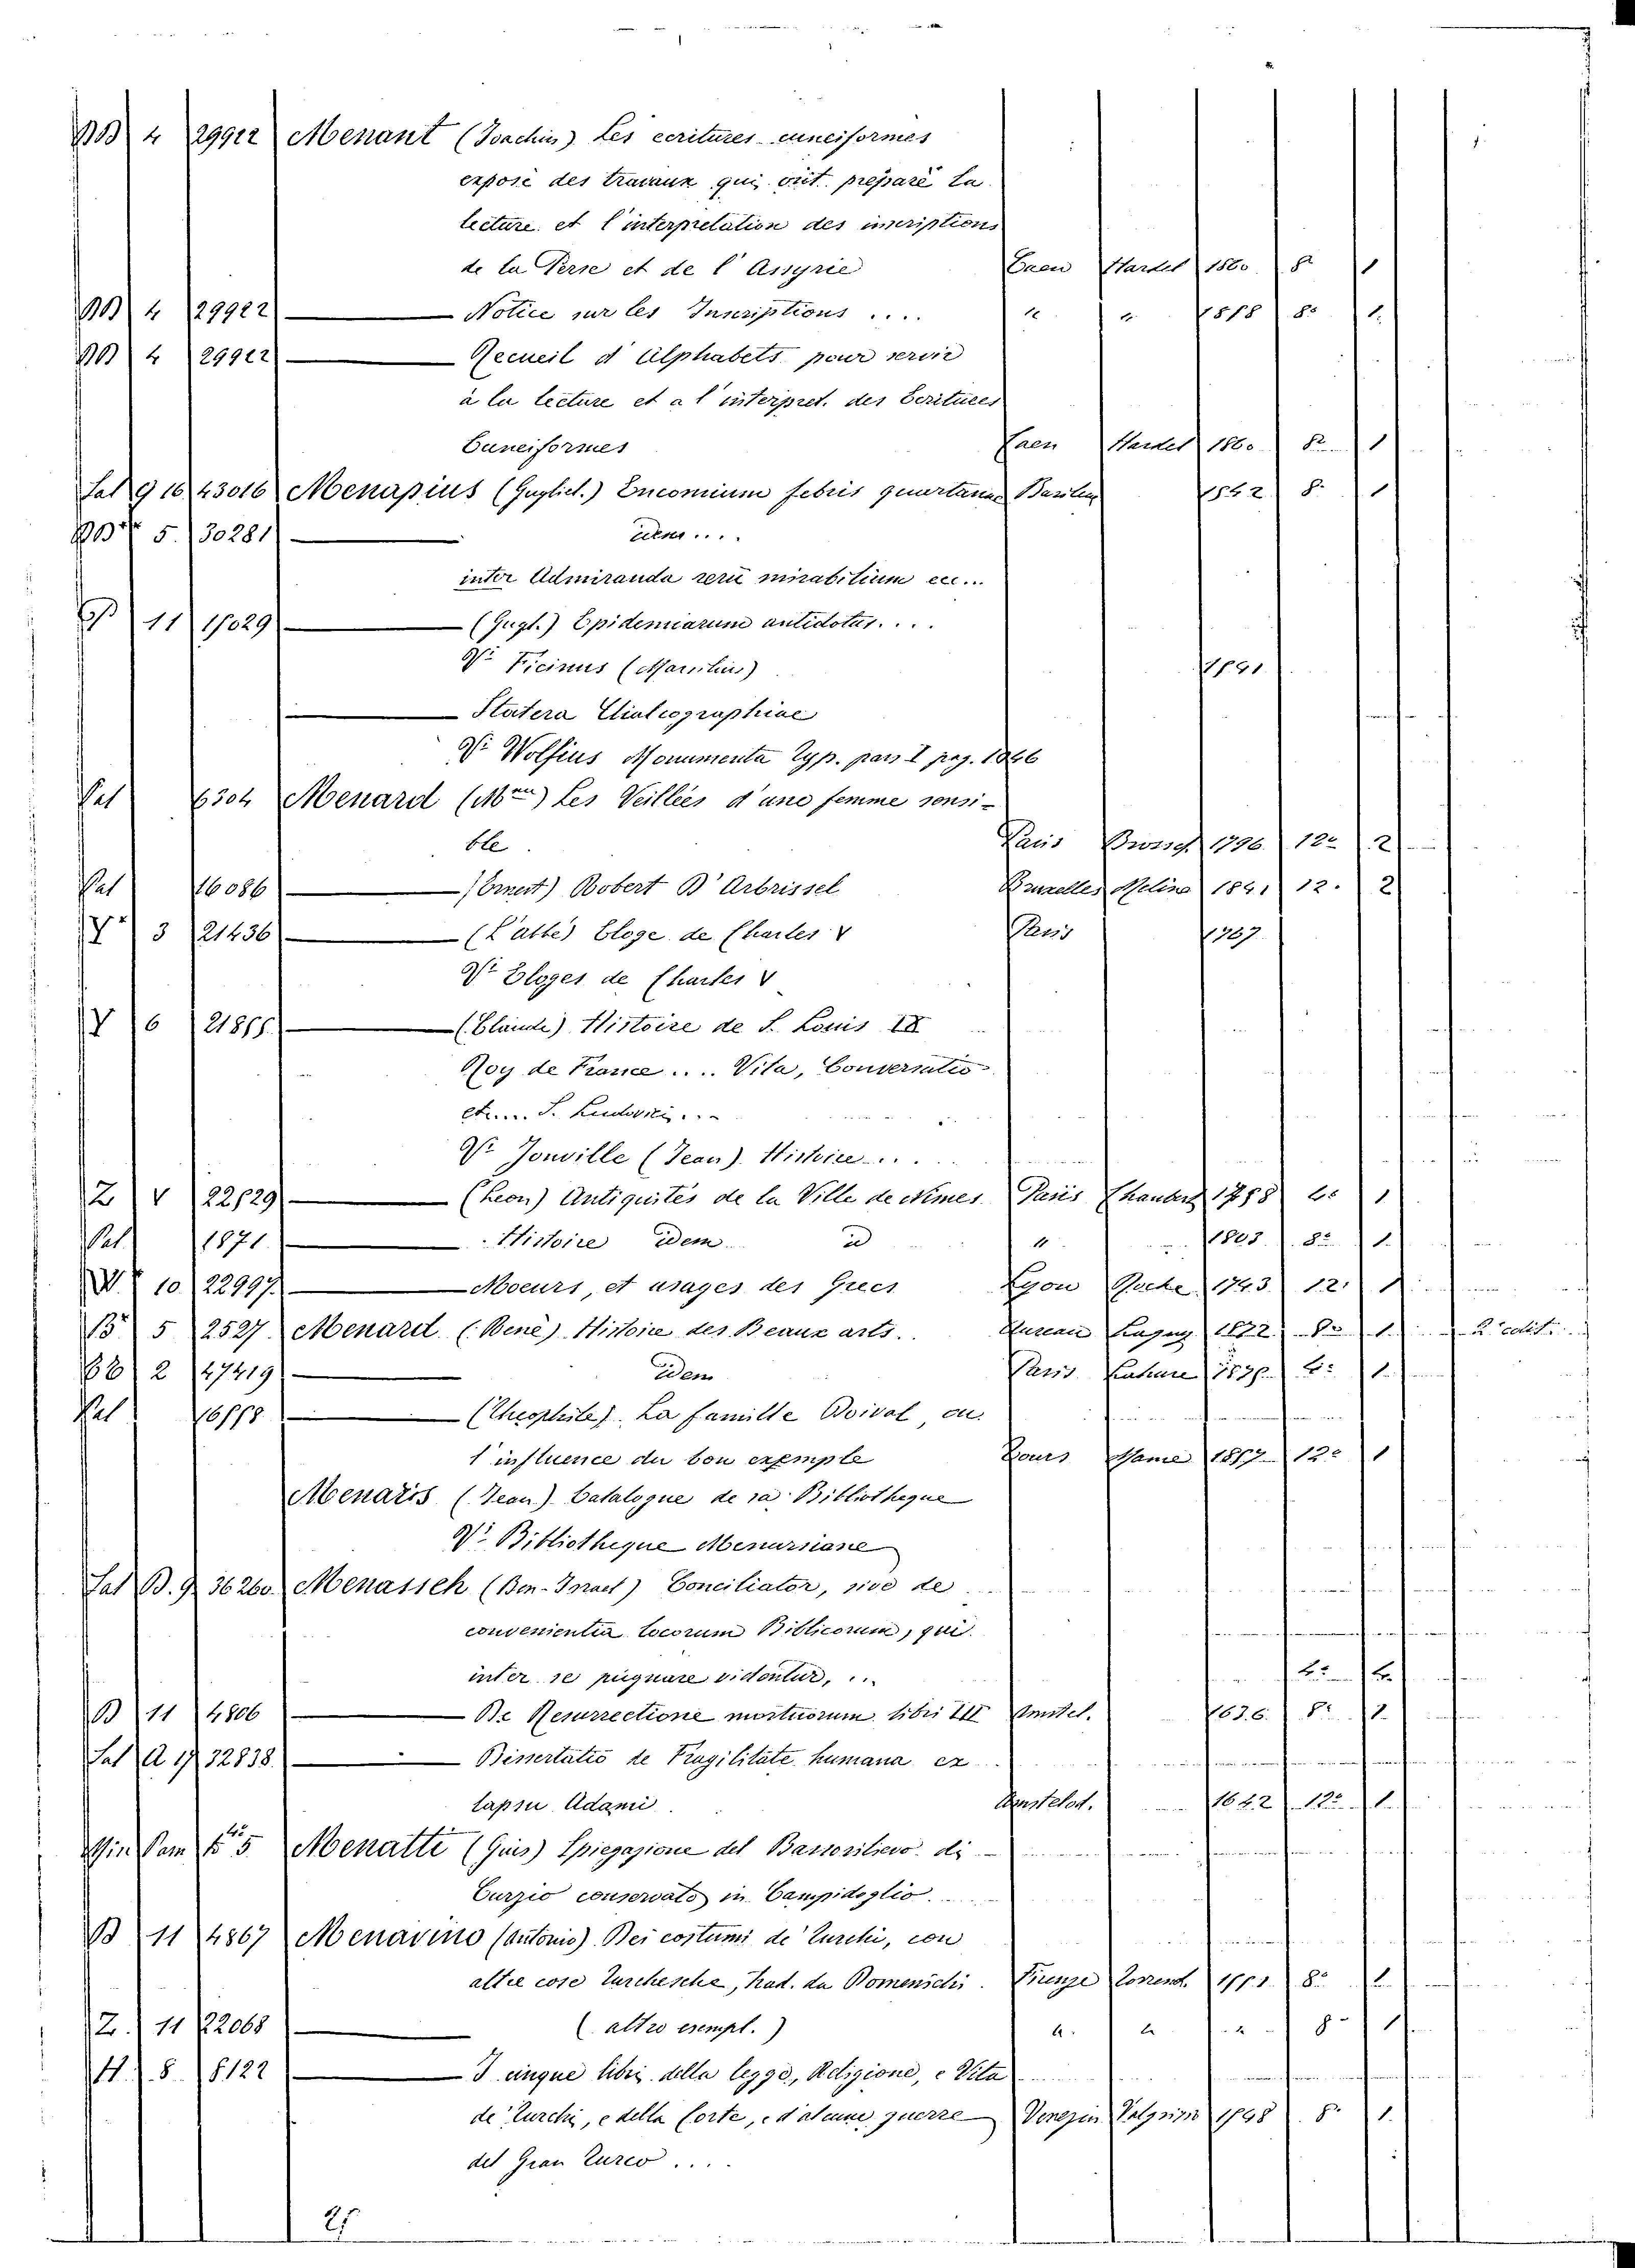 4 29922 Menant (Joachim) Les ecritures cuneiformes
exposé des travaux qui ont preparé la
lecture et l'interpretation des inscriptions
de la Perse et de l'Assyrie Caen Hardel 1860 8º 1
4 29922 — Notice sur les Inscriptions .... " " 8º 1.
4 29922 — Recueil d'Alphabets pour servir
à la lecture et a l'interpret. des Ecritures
Cuneiformes Caen Hardel 1860 8º 1
Sal g 16 43016 Menapius (Gugliel.) Encomium febris quartanae Basileae 1542 8º 1
5. 30281 — idem ....
inter Admiranda reru mirabilium etc...
11 — (Gugl.) Epidemiarum antidotus....
Vº Ficinus (Marsilius)
— Statera Chalcographiae
Vº Wolfius Monumenta Typ. pars I pag. 1046
Pal 6304 Menard (Mme) Les Veillées d'une femme sensi-
ble Paris 1796 12º 2
Pal 16086 — (Ernest) Robert D'Arbrissel Bruxelles Meline 1841 12. 2
3 21436 — (L'abbé) Eloge de Charles V Paris 1767
Vº Eloges de Charles V
Y 6 — (Claude) Histoire de S. Louis IX
Roy de France .... Vita, Conversatio
et.... S. Ludovici ...
Vº Jonville (Jean) Histoire ....
Z V — (Leon) Antiquités de la Ville de Nimes Paris Chaubert 4º 1
Pal 1871 — Histoire idem id " 8º 1.
10 22997 — Moeurs, et usages des Grecs Lyon Roche 1743 12º 1
B 5 2527 Menard (René) Histoire des Beaux arts. 8º 1. 2ª edit.
2 47419 — idem Paris Lahure 4º 1.
Pal — (Theophile) La famille Doival, ou
l'influence du bon exemple Tours Mame 12º 1
Menars (Jean) Catalogue de sa Bibliotheque
Vº Bibliotheque Menarsiane
Sal B. 9 36260 Menasseh (Ben-Israel) Conciliator, sive de
convenientia locorum Biblicorum, qui
inter se pugnare videntur, ... 4º
B 11 4806 — De Resurrectione mortuorum libri III Amstel. 1636 8º 1.
Sal A 17 32838 — Dissertatio de Fragilitate humana ex
lapsu Adami Amstelod. 1642 12º 1.
Min Pam 5 Menatti (Guis) Spiegazione del Bassorilievo di
Curzio conservato in Campidoglio
B 11 4867 Menavino (Antonio) Dei costumi de' Turchi, con
altre cose Turchesche, trad. da Domenichi. Firenze Torrent. 1551 8º 1
Z. 11 22068 — (altro esempl.) " " " 8º 1
H. 8 8122 — I cinque libri della legge, Religione, e Vita
de' Turchi, e della Corte, e d'alcune guerre Venezia Valgrisi 1548 8º 1.
del Gran Turco ....